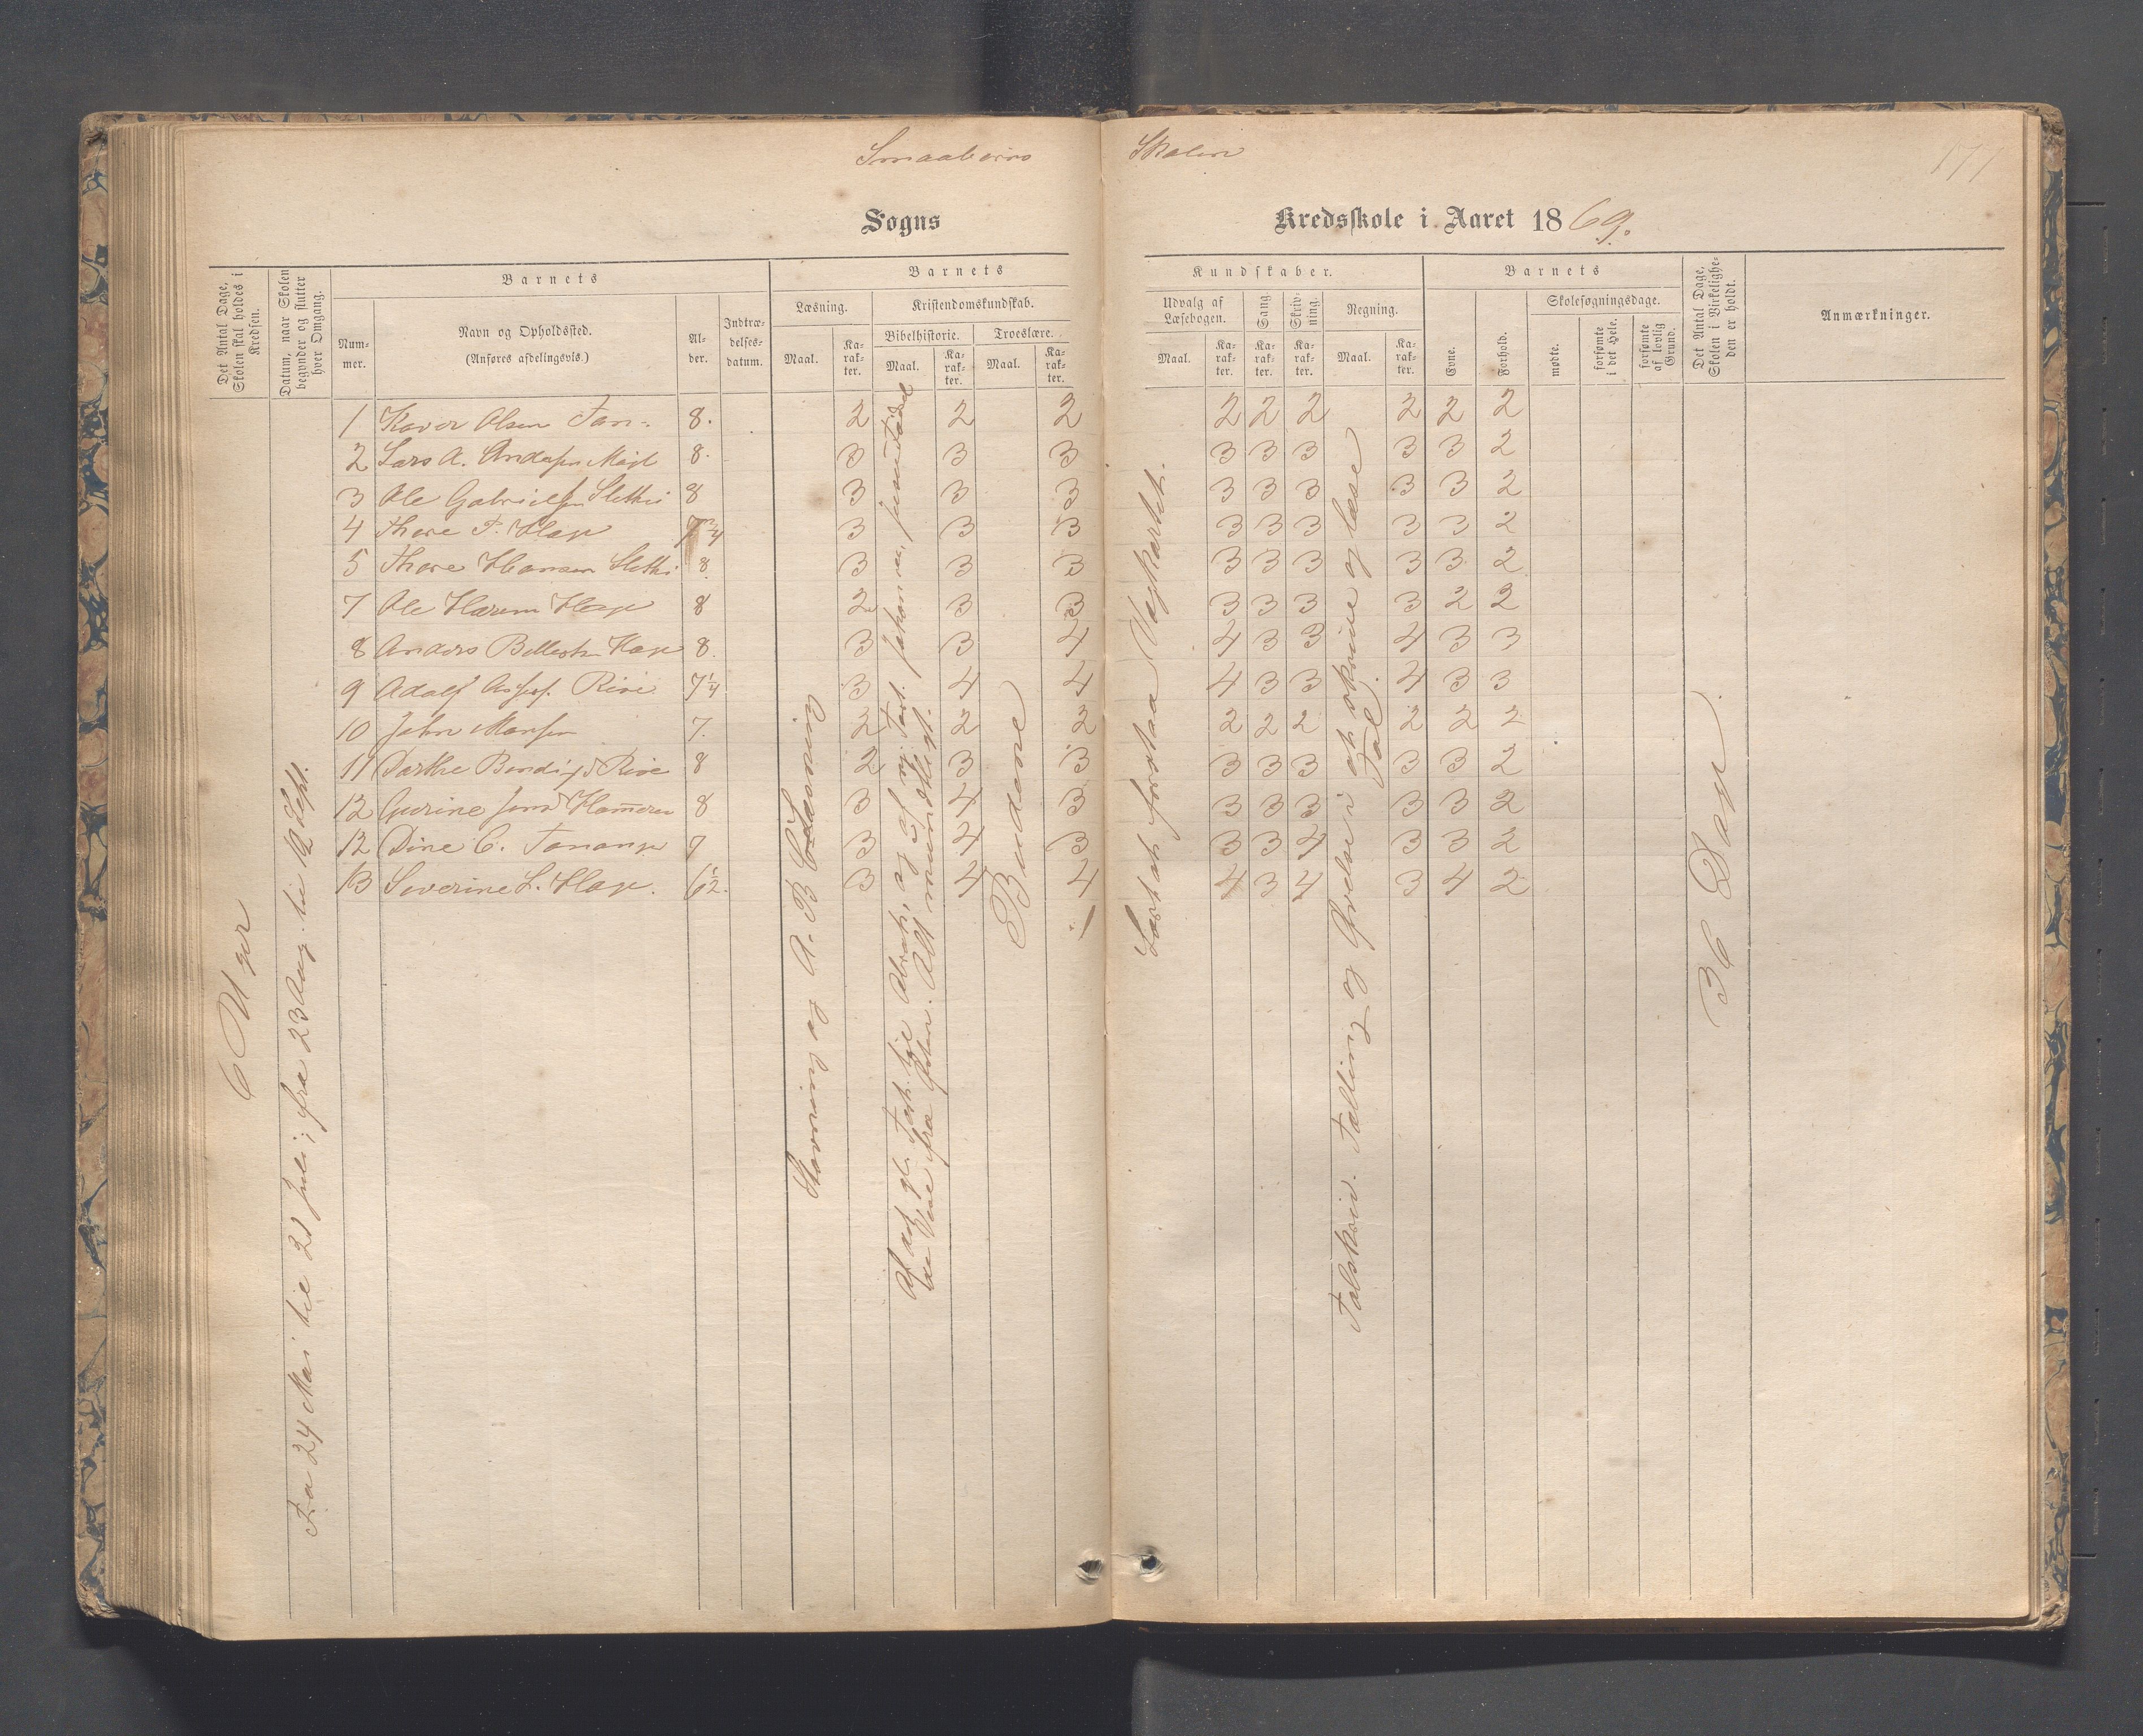 Smaabørns Skolen
171
Sogns Kredsskole i Aaret 1869.
Det Antal Dage, Skolen skal holdes i Kredsen.
Datum, naar Skolen begynder og slutter hver Omgang.
Barnets
Nummer.
Navn og Opholdssted.
(Anføres afdelingsvis.)
Alder.
Indtrædelsesdatum.
Barnets
Læsning.
Maal.
Karakter.
Kristendomskundskab.
Bibelhistorie.
Maal.
Karakter.
Troeslære.
Maal.
Karakter.
Kundskaber.
Udvalg af Læsebogen.
Maal.
Karakter.
Sang.
Karakter.
Skrivning.
Karakter.
Regning.
Maal.
Karakter.
Barnets
Evne.
Forhold.
Skolesøgningsdage.
mødte.
forsømte i det Hele.
forsømte af lovlig Grund.
Det Antal Dage, Skolen i Virkeligheden er holdt.
Anmærkninger.
6 Uger
Fra 24 Mai til 21 Juli; fra 23 Aug. til 19 Sept.
Stavning og A. B C Læsning
Budene
Talskriv. Tælling og Øvelse i at skrive og læse Tal.
36 Dage
1 Olsen 8. 2 2 2 2 2 2 2 2 2
2 Lars A. 8. 3 3 3 3 3 3 3 3 2
3 Ole Gabrielsen 8 3 3 3 3 3 3 3 3 2
4 Thore T. Hage 7 3/4 3 3 3 3 3 3 3 3 2
5 Thore Hansen 8. 3 3 3 3 3 3 3 3 2
7 Ole Hage 8 2 3 3 3 3 3 3 2 2
8 Anders Hage 8. 3 3 4 4 3 3 4 3 3
9 Adolf Rive 7 1/4 3 4 4 4 3 3 4 3 3
10 John 7. 2 2 2 2 2 2 2 2 2
11 Rive 8 2 3 3 3 3 3 3 3 2
12 8 3 4 3 3 3 3 3 3 2
12 Dine C. Tananger 7 3 4 3 3 3 4 3 3 2
13 Severine L. Hage. 6 1/2. 3 4 4 4 3 4 3 4 2